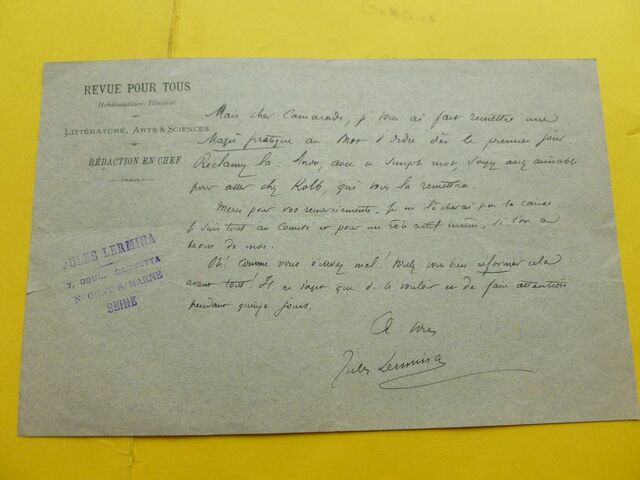 REVUE POUR TOUS
Hebdomadaire, Illustrée
LITTÉRATURE, ARTS & SCIENCES
RÉDACTION EN CHEF
Mais cher Camarade, je vous ai fait remettre une
Magie pratique au Mot d'Ordre dès le premier jour
Réclamez la. Sinon, avec ce simple mot, soyez assez aimable
pour aller chez Kolb, qui vous la remettra.
Merci pour vos remerciements. Je ne lâcherai pas la cause
Je suis tout au Comité et pour un rôle actif même, si l'on a
besoin de moi.
Oh! comme vous écrivez mal! Voulez vous bien réformer cela
avant tout! Il ne s'agit que de le vouloir et de faire attention
pendant quinze jours.
A vous
Jules Lermina
JULES LERMINA
7, BOUL. GAMBETTA
NOGENT S/MARNE
SEINE